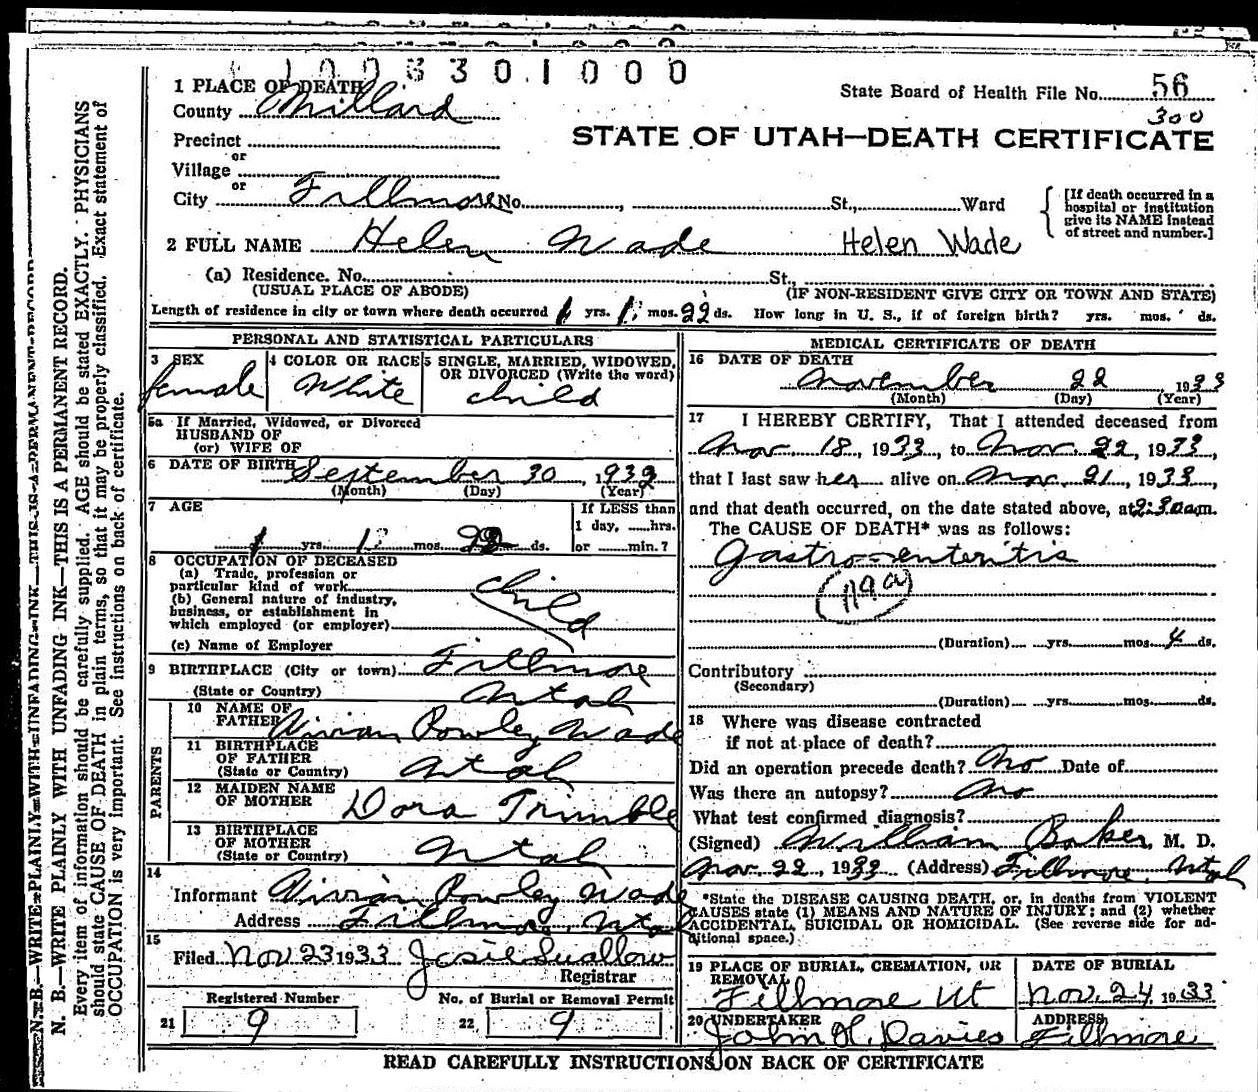 1 0 0 3 3 0 1 0 0 0
1 PLACE OF DEATH
County Millard
State Board of Health File No. 56
300
Precinct
STATE OF UTAH—DEATH CERTIFICATE
or
Village
or
City Fillmore No. , St., Ward
[If death occurred in a hospital or institution give its NAME instead of street and number.]
2 FULL NAME Helen Wade Helen Wade
(a) Residence. No. St.,
(USUAL PLACE OF ABODE) (IF NON-RESIDENT GIVE CITY OR TOWN AND STATE)
Length of residence in city or town where death occurred 1 yrs. 1 mos. 22 ds. How long in U. S., if of foreign birth? yrs. mos. ds.
PERSONAL AND STATISTICAL PARTICULARS
3 SEX
female
4 COLOR OR RACE
White
5 SINGLE, MARRIED, WIDOWED, OR DIVORCED (Write the word)
child
5a If Married, Widowed, or Divorced
HUSBAND OF
(or) WIFE OF
6 DATE OF BIRTH September 30, 1932
(Month) (Day) (Year)
7 AGE
1 yrs. mos. 22 ds.
If LESS than
1 day, hrs.
or min.?
8 OCCUPATION OF DECEASED
(a) Trade, profession or
particular kind of work
(b) General nature of industry,
business, or establishment in
which employed (or employer)
child
(c) Name of Employer
9 BIRTHPLACE (City or town) Fillmore
(State or Country) Utah
PARENTS
10 NAME OF
FATHER Vivian Rowley Wade
11 BIRTHPLACE
OF FATHER
(State or Country) Utah
12 MAIDEN NAME
OF MOTHER Dora Trimble
13 BIRTHPLACE
OF MOTHER
(State or Country) Utah
14
Informant Vivian Rowley Wade
Address Fillmore Utah
15
Filed Nov 23 1933 Josie Swallow
Registrar
Registered Number
21 9
No. of Burial or Removal Permit
22 9
MEDICAL CERTIFICATE OF DEATH
16 DATE OF DEATH
November 22, 1933
(Month) (Day) (Year)
17 I HEREBY CERTIFY, That I attended deceased from
Nov. 18, 1933, to Nov. 22, 1933,
that I last saw her alive on Nov. 21, 1933,
and that death occurred, on the date stated above, at 2:30 a.m.
The CAUSE OF DEATH* was as follows:
Gastro-enteritis
(Duration) yrs. mos. 4 ds.
Contributory
(Secondary)
(Duration) yrs. mos. ds.
18 Where was disease contracted
if not at place of death?
Did an operation precede death? No Date of
Was there an autopsy? No
What test confirmed diagnosis?
(Signed) William Baker, M. D.
Nov. 22, 1933 (Address) Fillmore Utah
*State the DISEASE CAUSING DEATH, or, in deaths from VIOLENT
CAUSES state (1) MEANS AND NATURE OF INJURY; and (2) whether
ACCIDENTAL, SUICIDAL OR HOMICIDAL. (See reverse side for ad-
ditional space.)
19 PLACE OF BURIAL, CREMATION, OR
REMOVAL
Fillmore Ut
DATE OF BURIAL
Nov. 24, 1933
20 UNDERTAKER
John H. Davies
ADDRESS
Fillmore
READ CAREFULLY INSTRUCTIONS ON BACK OF CERTIFICATE
N. B.—WRITE PLAINLY WITH UNFADING INK—THIS IS A PERMANENT RECORD.
N. B.—WRITE PLAINLY WITH UNFADING INK—THIS IS A PERMANENT RECORD.
Every item of information should be carefully supplied. AGE should be stated EXACTLY. PHYSICIANS
should state CAUSE OF DEATH in plain terms, so that it may be properly classified. Exact statement of
OCCUPATION is very important. See instructions on back of certificate.